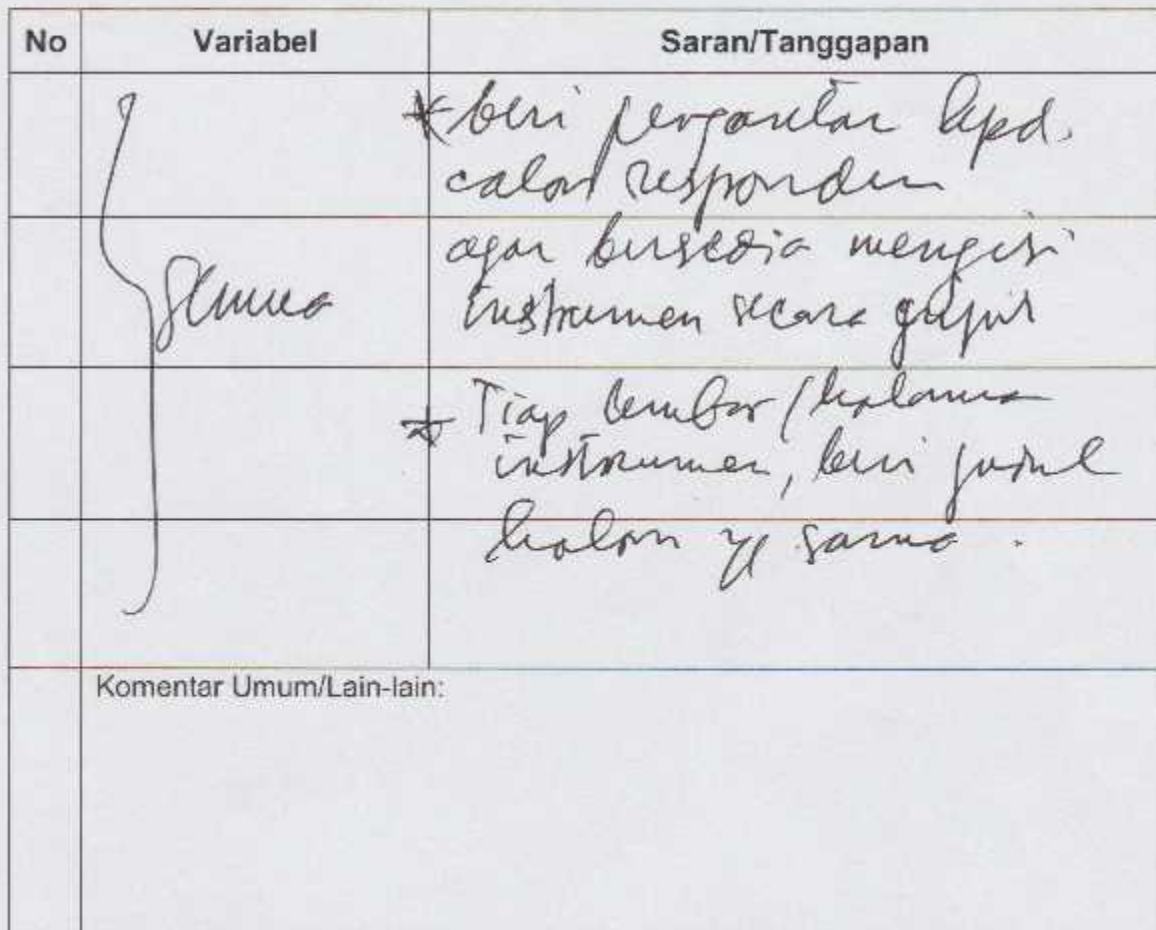 No Variabel Saran/Tanggapan
* beri pengantar kpd.
calon responden
agar bersedia mengisi
Semua
instrumen secara jujur
* Tiap lembar/halaman
instrumen, beri judul
kolom yg sama.
Komentar Umum/Lain-lain: